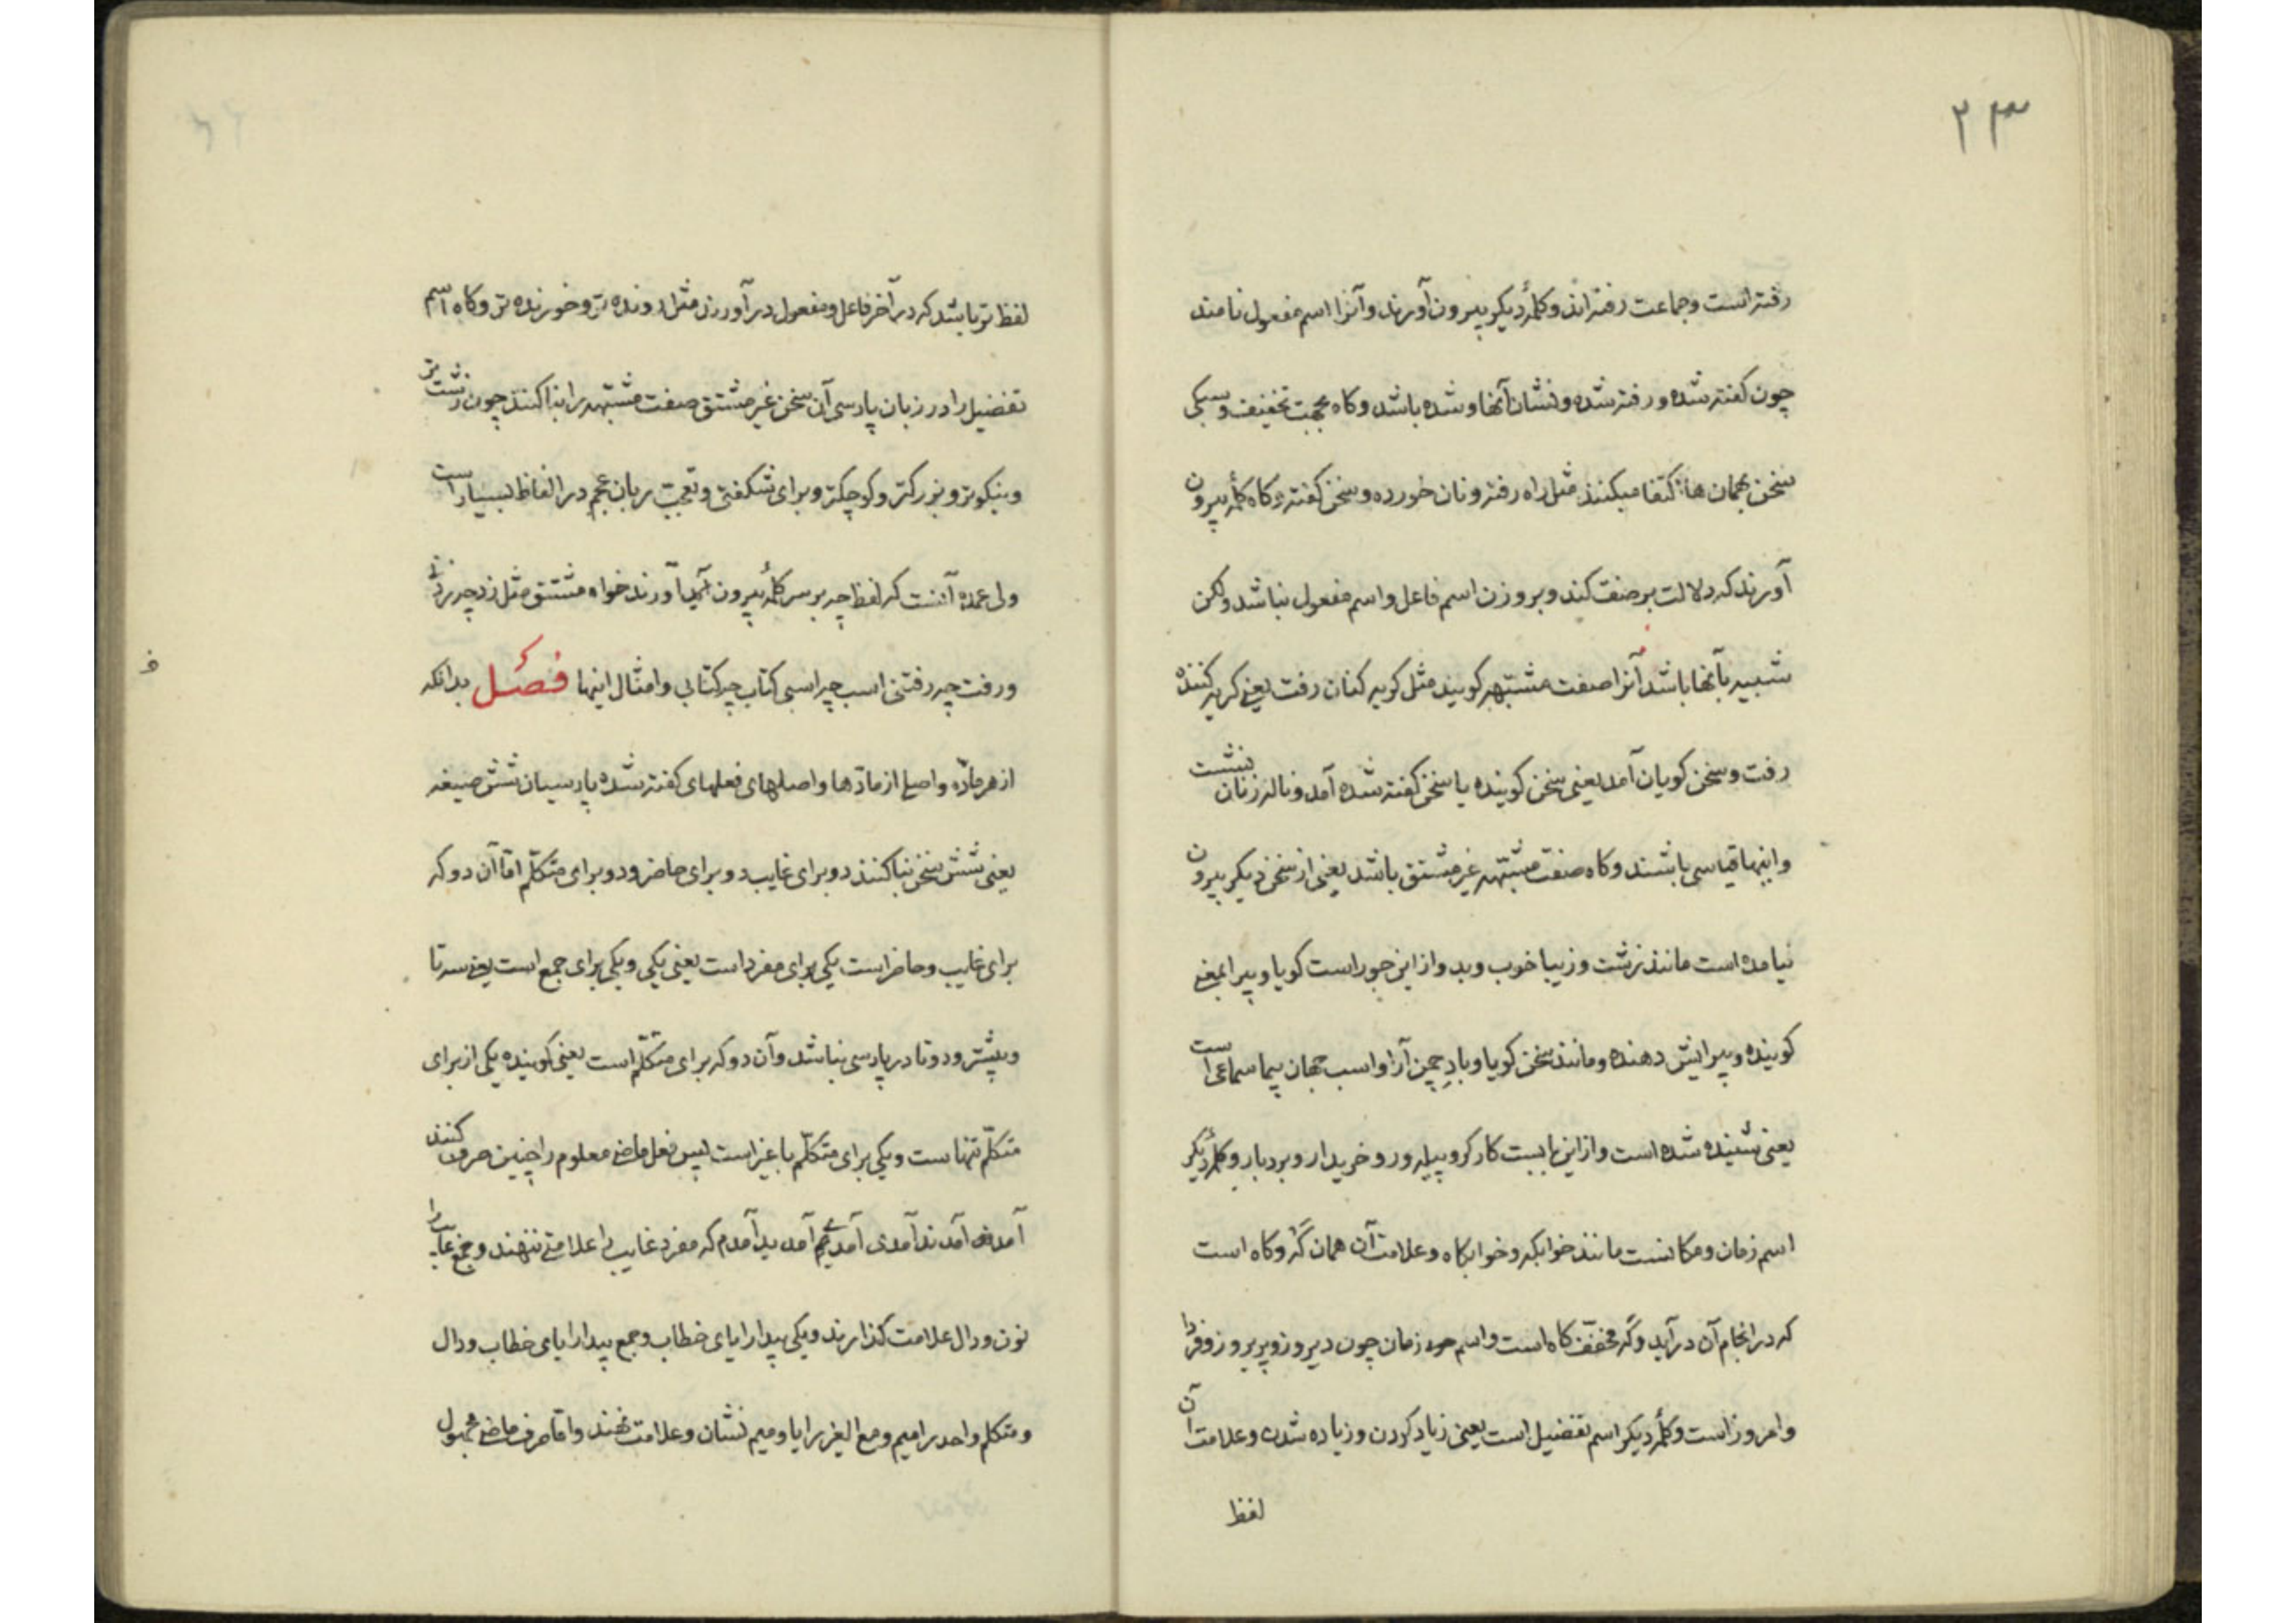 ۲۳
رفته است و جماعت رفته‌اند و کلمهٔ دیگر بیرون آورند و آنرا اسم مفعول نامند
چون گفته شده و رفته شده و نشان آنها و شده باشد و کاه بجهت تخفیف و سبکی
سخن بهمان ها اکتفا میکنند مثل راه رفته و نان خورده و سخن کفته و کاه کلمهٔ بیرون
آورند که دلالت بر صفت کند و بر وزن اسم فاعل و اسم مفعول نباشد ولکن
شبیه بآنها باشد آنرا صفت مشتبهه کویند مثل کریه کنان رفت یعنی کریه کننده
رفت و سخن کویان آمد یعنی سخن کوینده یا سخن کفته شده آمد و ناله زنان نشست
و اینها قیاسی باشند و کاه صفت مشتبهه غیر مشتق باشد یعنی از سخن دیکر بیرون
نیامده است مانند زشت و زیبا خوب و بد و از این جور است کویا و پیرا بمعنی
کوینده و پیرایش دهنده و مانند سخن کویا و بادِ چمن آرا و اسب جهان پیما سماعی است
یعنی شنیده شده است و از این بابست کارکر و پیله ور و خریدار و بردبار و کلمهٔ دیکر
اسم زمان و مکانست مانند خوابکه و خوابکاه و علامت آن همان گه و کاه است
که در انجام آن درآید و گه مخفف کاه است و اسم زمان چون دیروز و پریروز و فردا
و امروز است و کلمهٔ دیکر اسم تفضیل است یعنی زیاد کردن و زیاده شدن و علامت آن
لفظ
لفظ تر باشد که در آخر فاعل و مفعول درآورند مثل دونده تر و خورنده تر و کاه اسم
تفضیل را در زبان پارسی آن سخن غیر مشتق صفت مشتبهه را بنا کنند چون زشت تر
و نیکوتر و بزرکتر و کوچکتر و برای شکفتی و تعجب زبان عجم در الفاظ بسیار است
ولی عمده آنست که لفظ چه بر سر کلمهٔ بیرون آورند خواه مشتق مثل زد چه زدنی
و رفت چه رفتنی اسب چه اسبی کتاب چه کتابی و امثال اینها فصل بدانکه
از هر مادّه و اصلی از مادّها و اصلهای فعلهای کفته شده پارسیان شش صیغه
یعنی شش سخن بنا کنند دو برای غایب دو برای حاضر و دو برای متکلّم امّا آن دو که
برای غایب و حاضر است یکی برای مفرد است یعنی یکی و یکی برای جمع است یعنی سه تا
و بیشتر و دو تا در پارسی نباشد و آن دو که برای متکلّم است یعنی کوینده یکی از برای
متکلّم تنهاست و یکی برای متکلّم با غیر است پس فعل ماضی معلوم را چنین صرف کنند
آمد آمدند آمدی آمدید آمدم که مفرد غایب را علامتی ننهند و جمع غایب را
نون و دال علامت کذارند و یکی پیدا را یای خطاب و جمع پیدا را یای خطاب و دال
و متکلم واحد را میم و مع الغیر را یا و میم نشان و علامت نهند و امّا صرف ماضی مجهول